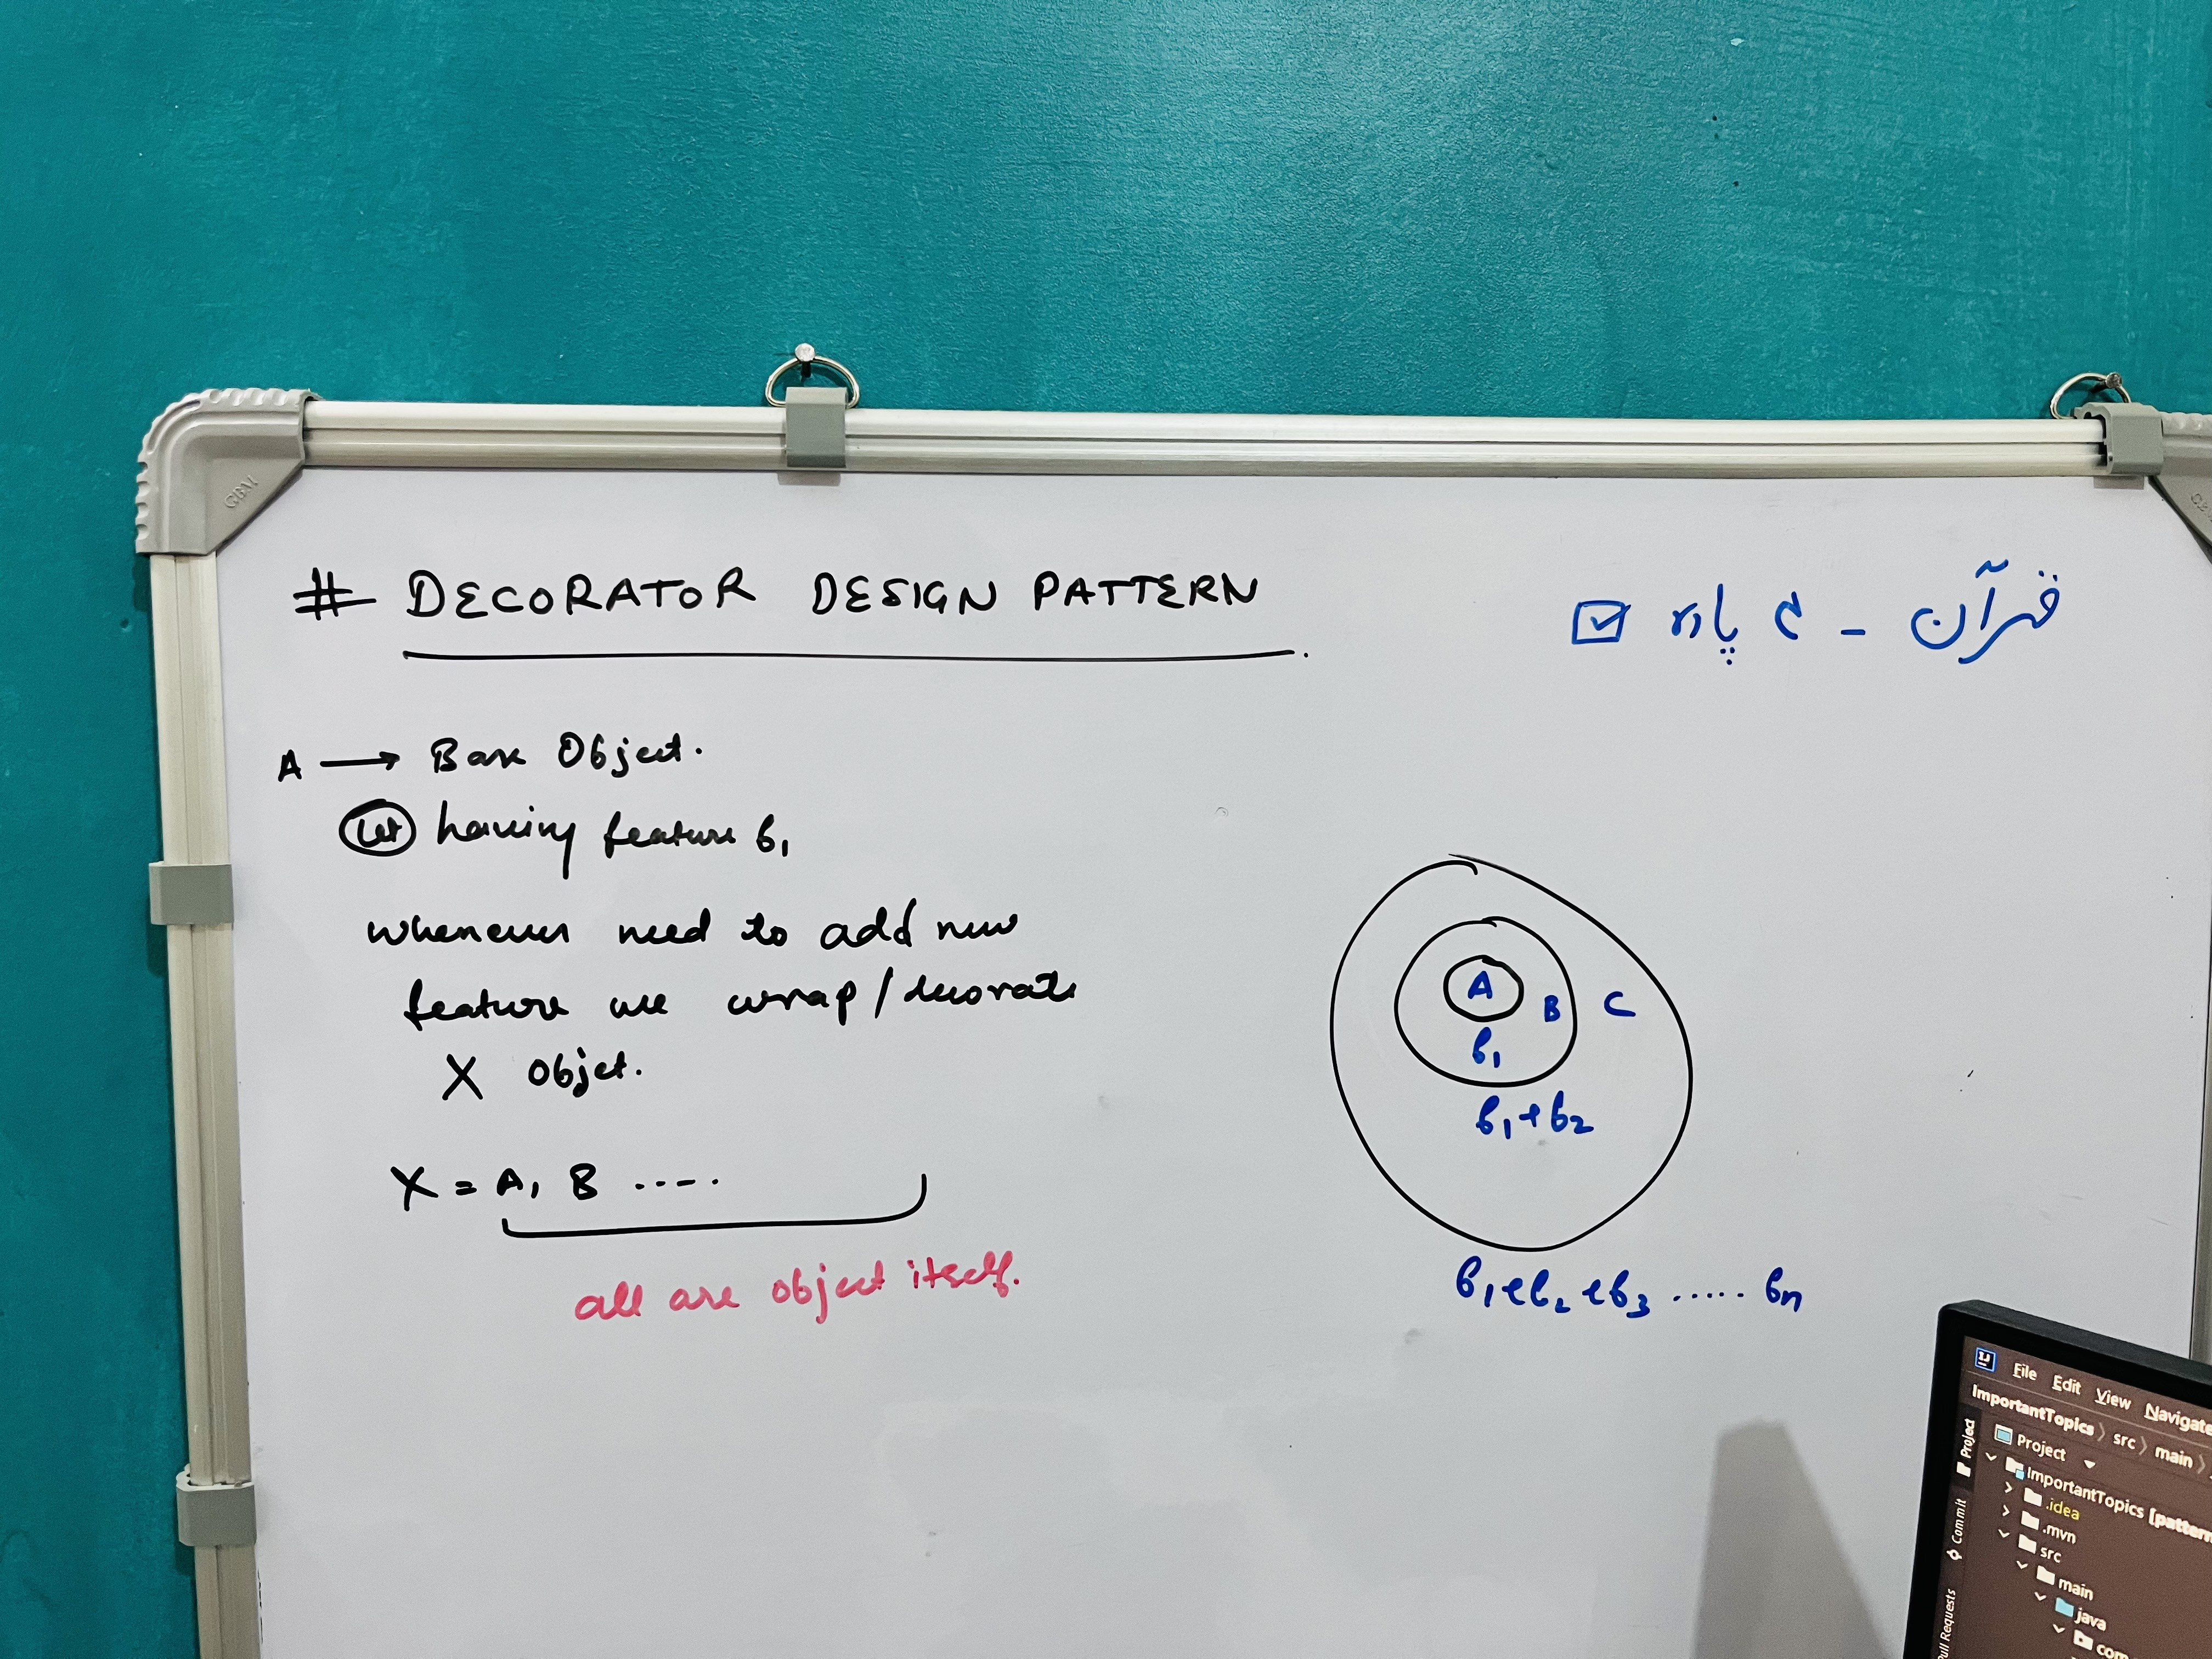 # DECORATOR DESIGN PATTERN
قرآن - ۴ پارہ ☑
A → Base Object.
Let having feature f1
whenever need to add new
feature we wrap/decorate
X Objet.
X = A, B .....
all are object itself.
A
B
C
f1
f1+f2
f1+f2+f3 ..... fn
File Edit View Navigate
ImportantTopics > src > main >
Project
Project
ImportantTopics [pattern
.idea
.mvn
src
main
java
com
Commit
Pull Requests
GBM